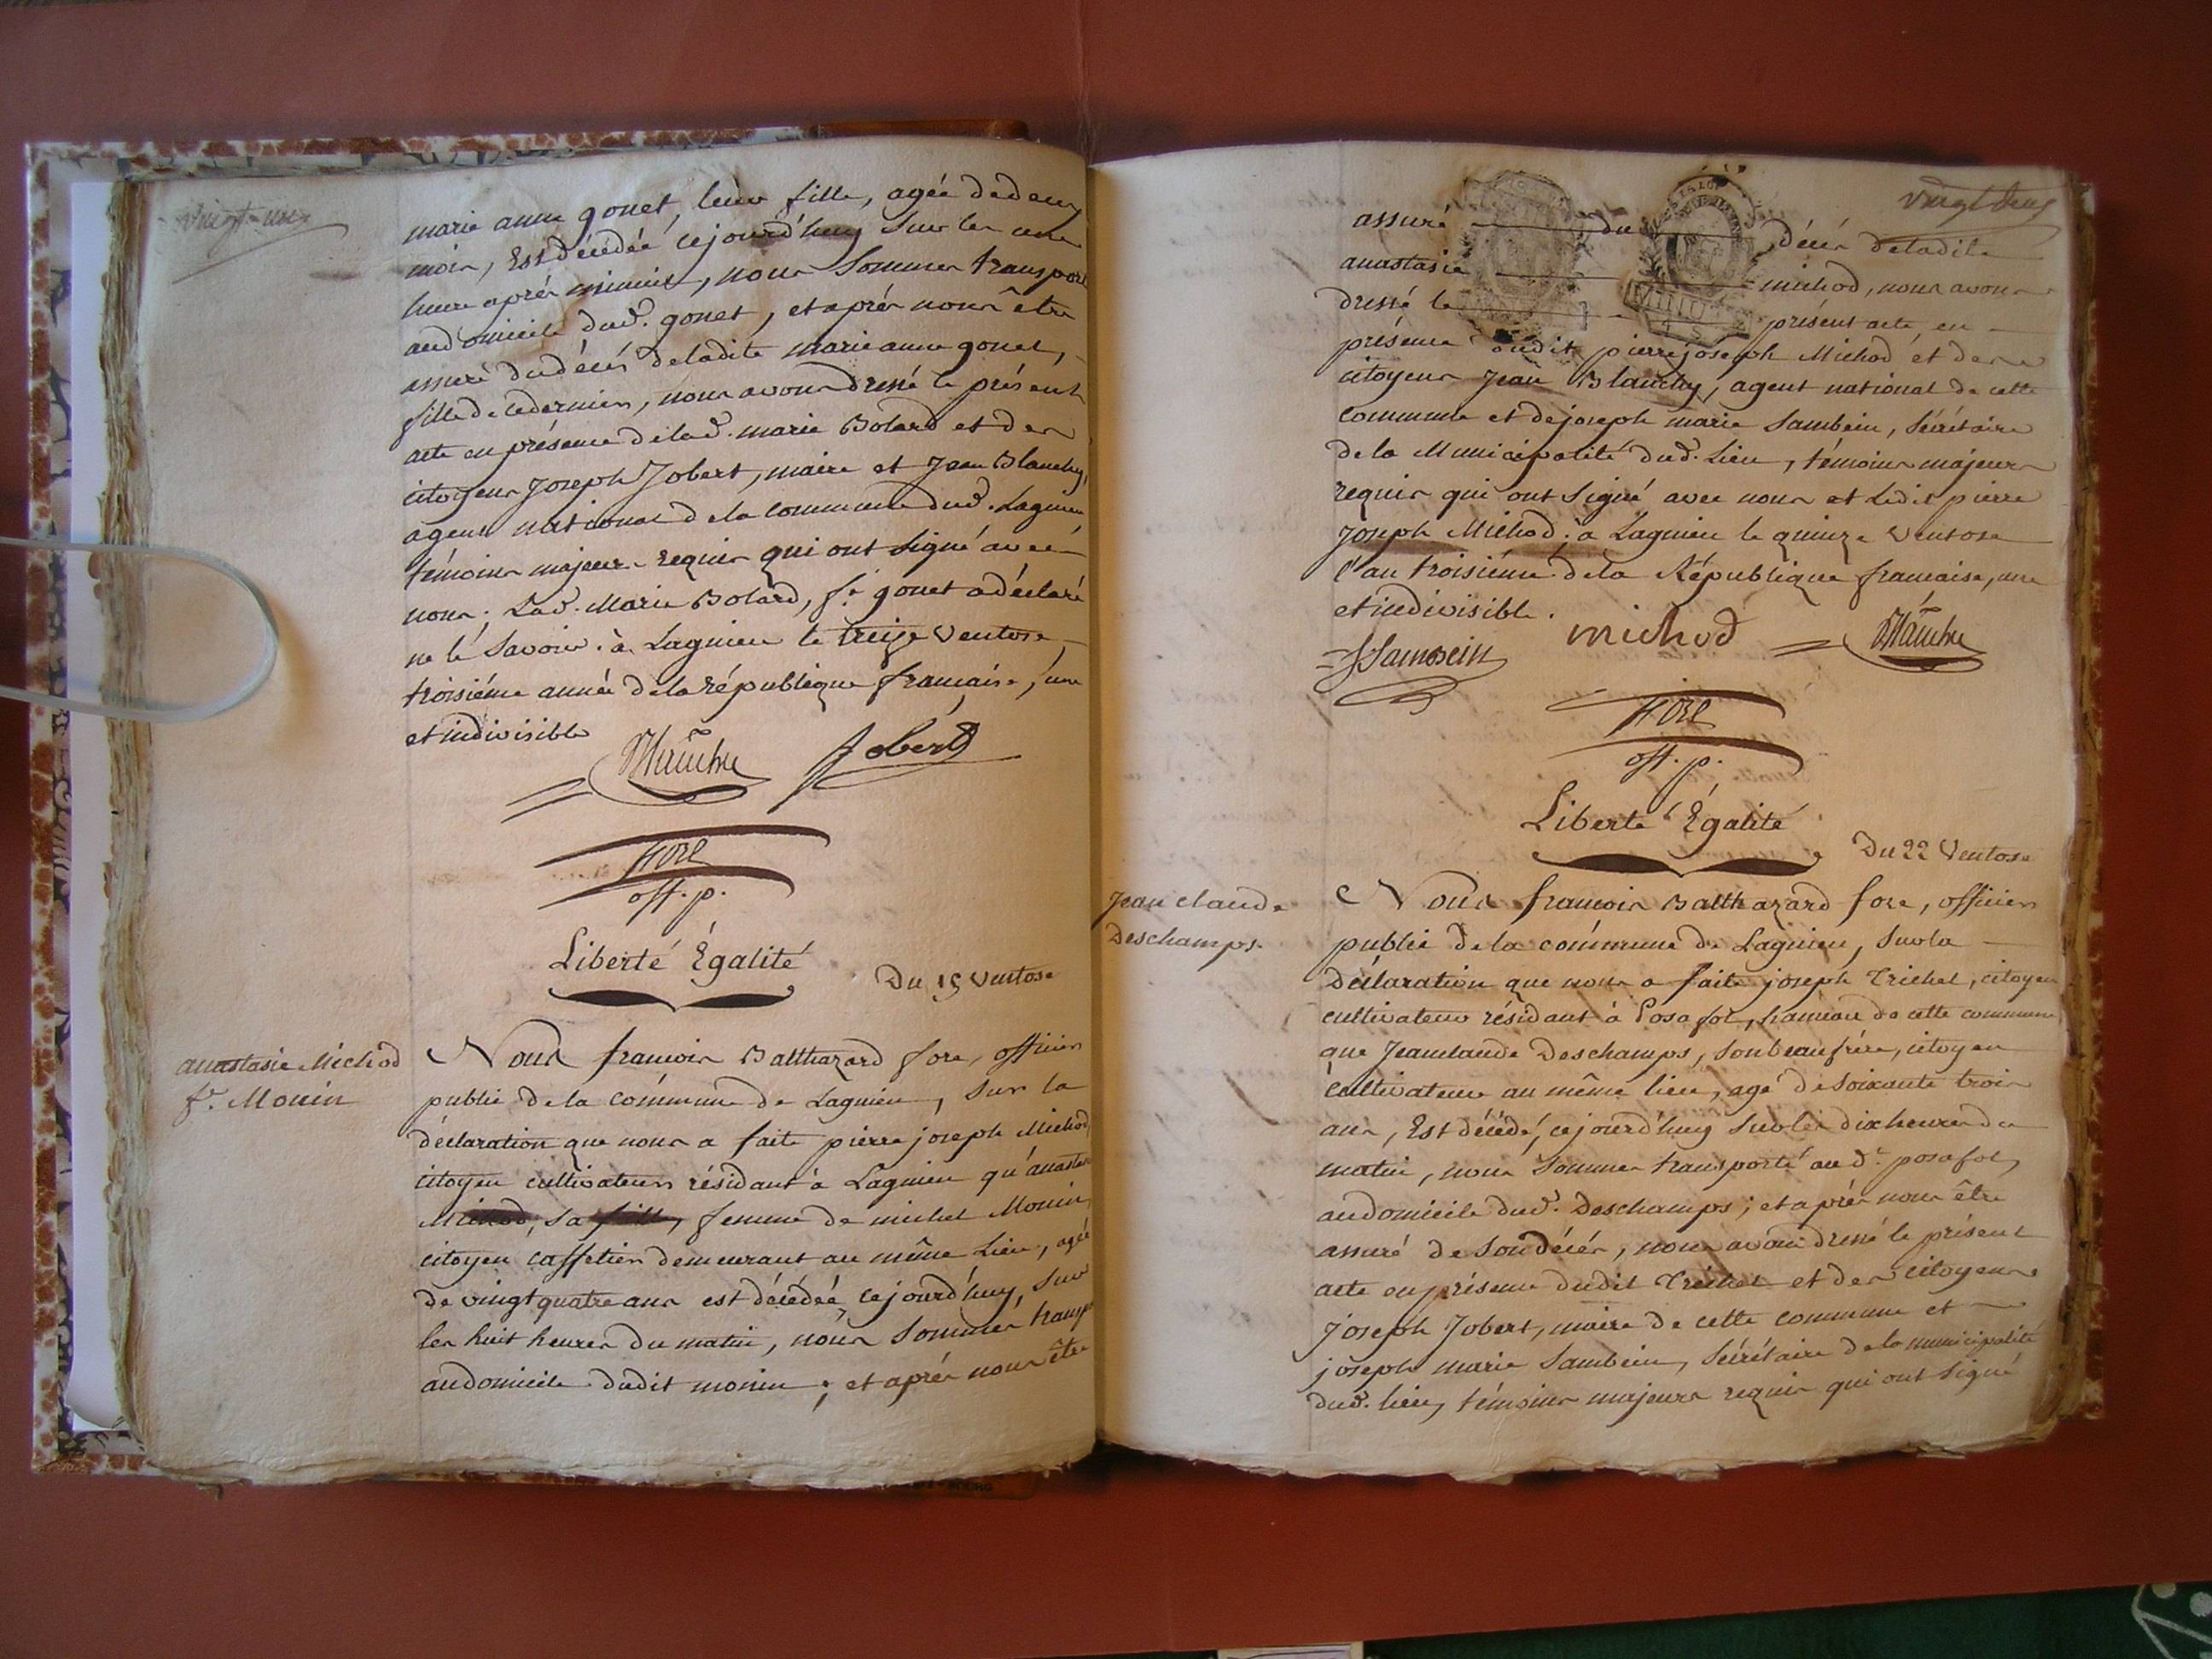 vingt-un
marie anne gonet, leur fille, agée de deux
mois, Est décédée cejourd'huy Sur les onze
heure aprés minuit, nous Sommes transporté
au domicile dud. gonet, et aprés nous être
assuré du décés de ladite marie anne gonet,
fille de ce dernier, nous avons dressé le présent
acte en présence de lad. marie Bolard et des
citoyens Joseph Jobert, maire et Jean Blanchy,
agent national de la commune dud. Lagnieu
témoins majeurs requis qui ont Signé avec
nous; Lad. Marie Bolard, fe. gonet a déclaré
ne le Savoir. à Lagnieu le treize Ventose,
troisiéme année de la république francaise, une
et indivisible
Blanchy Jobert
fore
off. p.
Liberté Égalité
Du 15 Ventose
anastasie Michod
fe. Monin
Nous francois Balthazard fore, officier
public de la commune de Lagnieu, Sur la
déclaration que nous a faite pierre joseph Michod,
citoyen cultivateur résidant à Lagnieu qu'anastasie
Michod, Sa fille, femme de michel Monin,
citoyen caffetier demeurant au même Lieu, agée
de vingt quatre ans est décédée, cejourd'huy, Sur
les huit heures du matin, nous Sommes transp
au domicile dudit monin; et aprés nous être
vingt deux
assuré du décés de ladite
anastasie michod, nous avons
dressé le présent acte, en
présence dudit pierre joseph Michod et des
citoyens Jean Blanchy, agent national de cette
commune et de joseph marie Sambein, Sécrétaire
de la Municipalité dud. Lieu, témoins majeurs
requis qui ont Signé avec nous et Ledit pierre
Joseph Michod; à Lagnieu le quinze Ventose
l'an troisiéme de la République francaise, une
et indivisible.
JSambein michod Blanchy
fore
off. p.
Liberté Égalité
Du 22 Ventose
Jean claude
Deschamps.
Nous francois Balthazard fore, officier
public de la commune de Lagnieu, Sur la
déclaration que nous a faite joseph Trichet, citoyen
cultivateur résidant à Posafol, hameau de cette commune
que Jeanclaude Deschamps, Son beaufrére, citoyen
cultivateur au même lieu, agé de Soixante trois
ans, Est décédé, cejourd'huy Sur les dix heures du
matin, nous Sommes transporté aud. posafol,
au domicile dud. Deschamps; et aprés nous être
assuré de Son décés, nous avons dressé le présent
acte en présence dudit Trichet et des citoyens
Joseph Jobert, maire de cette commune et
joseph marie Sambein, Sécrétaire de la municipalité
dud. lieu, témoins majeurs requis qui ont Signé